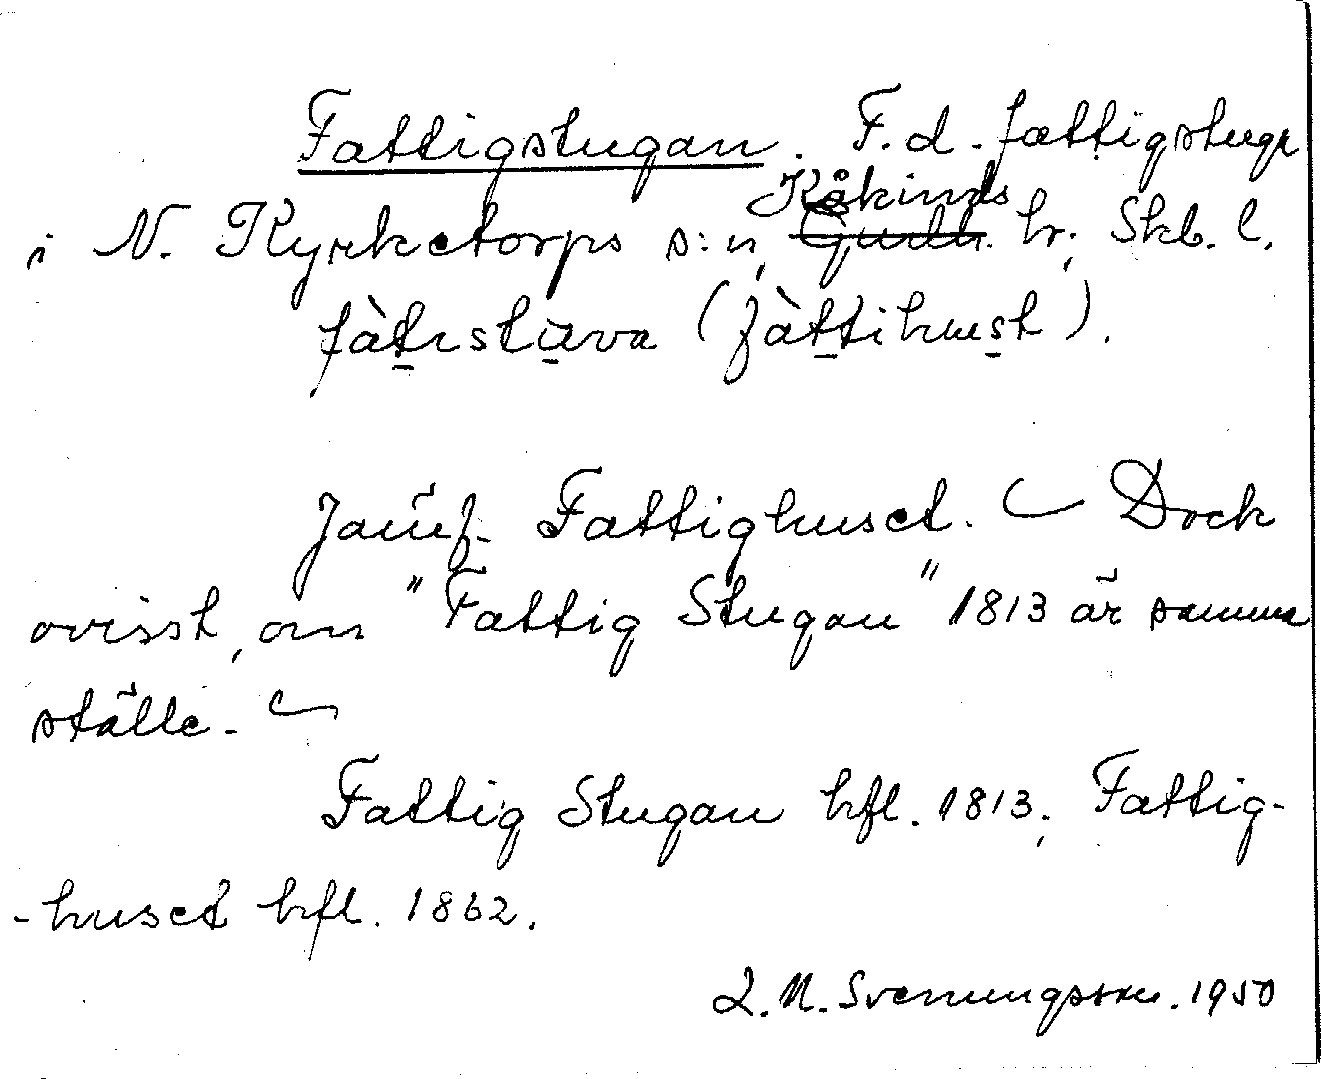 Fattigstugan. F.d. fattigstuga
i N. Kyrketorps s:n, Kåkinds Gudh. hr; Skb. l.
fàtɩstuva (fàttihust).
Jämf. Fattighuset. Dock
ovisst, om "Fattig Stugan" 1813 är samma
ställe.
Fattig Stugan hfl. 1813; Fattig-
-huset hfl. 1862.
L. M. Svenungsson. 1950